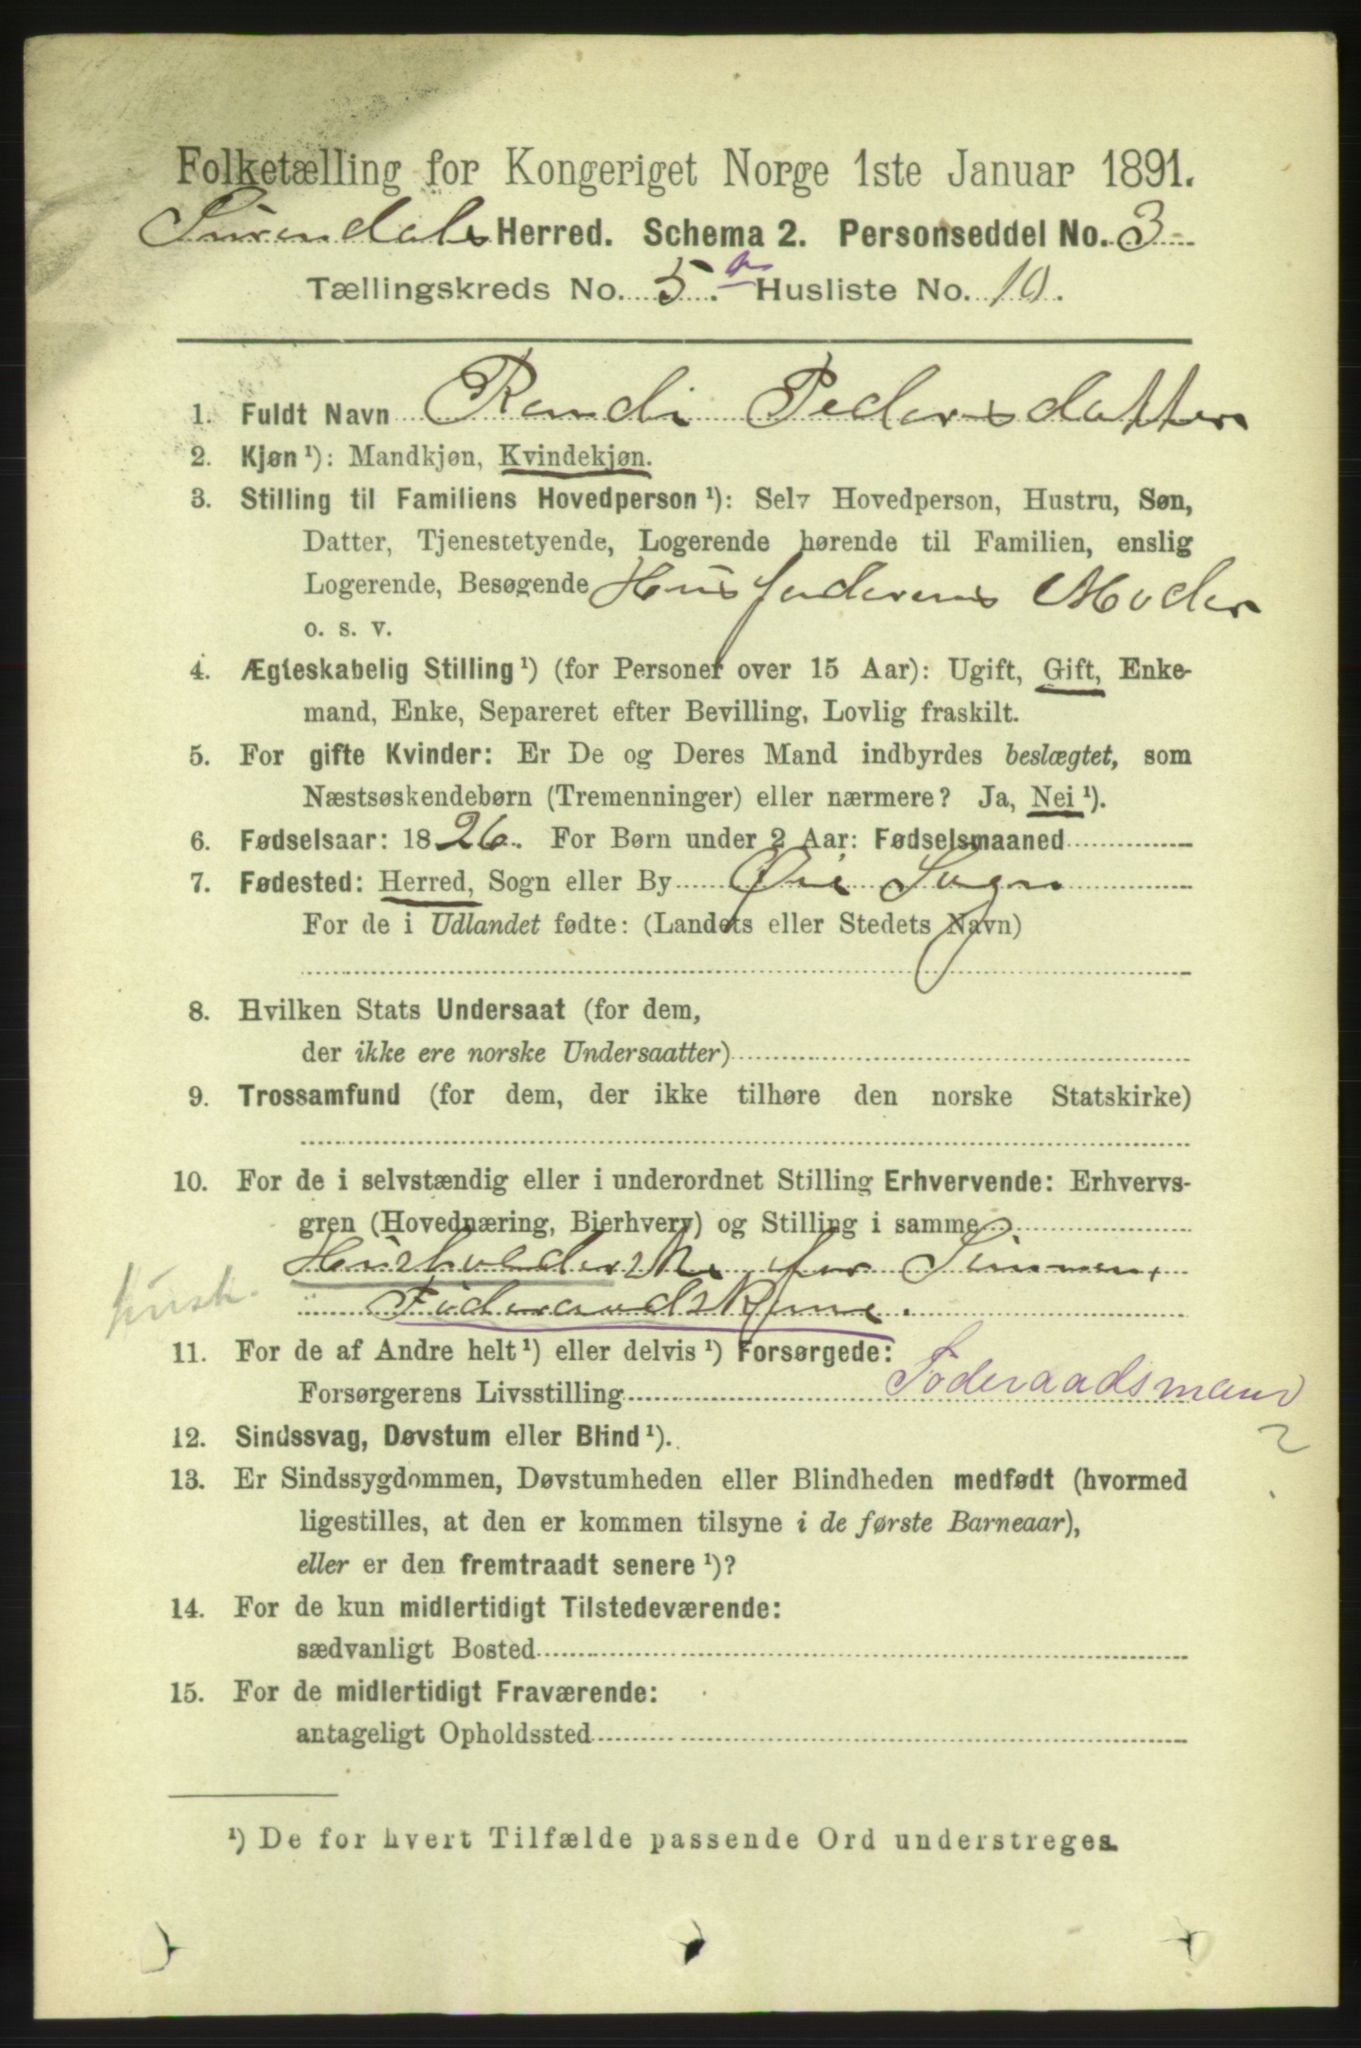 Folketælling for Kongeriget Norge 1ste Januar 1891.
Surendals Herred. Schema 2. Personseddel No. 3
Tællingskreds No. 5.a Husliste No. 10.
1. Fuldt Navn Randi Pedersdatter
2. Kjøn ¹): Mandkjøn, Kvindekjøn.
3. Stilling til Familiens Hovedperson ¹): Selv Hovedperson, Hustru, Søn,
Datter, Tjenestetyende, Logerende hørende til Familien, enslig
Logerende, Besøgende Husfaderens Moder
o. s. v.
4. Ægteskabelig Stilling ¹) (for Personer over 15 Aar): Ugift, Gift, Enke-
mand, Enke, Separeret efter Bevilling, Lovlig fraskilt.
5. For gifte Kvinder: Er De og Deres Mand indbyrdes beslægtet, som
Næstsøskendebørn (Tremenninger) eller nærmere? Ja, Nei ¹).
6. Fødselsaar: 1826. For Børn under 2 Aar: Fødselsmaaned
7. Fødested: Herred, Sogn eller By Øie Sogn
For de i Udlandet fødte: (Landets eller Stedets Navn)
8. Hvilken Stats Undersaat (for dem,
der ikke ere norske Undersaatter)
9. Trossamfund (for dem, der ikke tilhøre den norske Statskirke)
10. For de i selvstændig eller i underordnet Stilling Erhvervende: Erhvervs-
gren (Hovednæring, Bierhverv) og Stilling i samme
Husholderske for Sønnen,
husk. Føderaadskone.
11. For de af Andre helt ¹) eller delvis ¹) Forsørgede:
Forsørgerens Livsstilling Føderaadsmand
12. Sindssvag, Døvstum eller Blind ¹). 2
13. Er Sindssygdommen, Døvstumheden eller Blindheden medfødt (hvormed
ligestilles, at den er kommen tilsyne i de første Barneaar),
eller er den fremtraadt senere ¹)?
14. For de kun midlertidigt Tilstedeværende:
sædvanligt Bosted
15. For de midlertidigt Fraværende:
antageligt Opholdssted
¹) De for hvert Tilfælde passende Ord understreges.